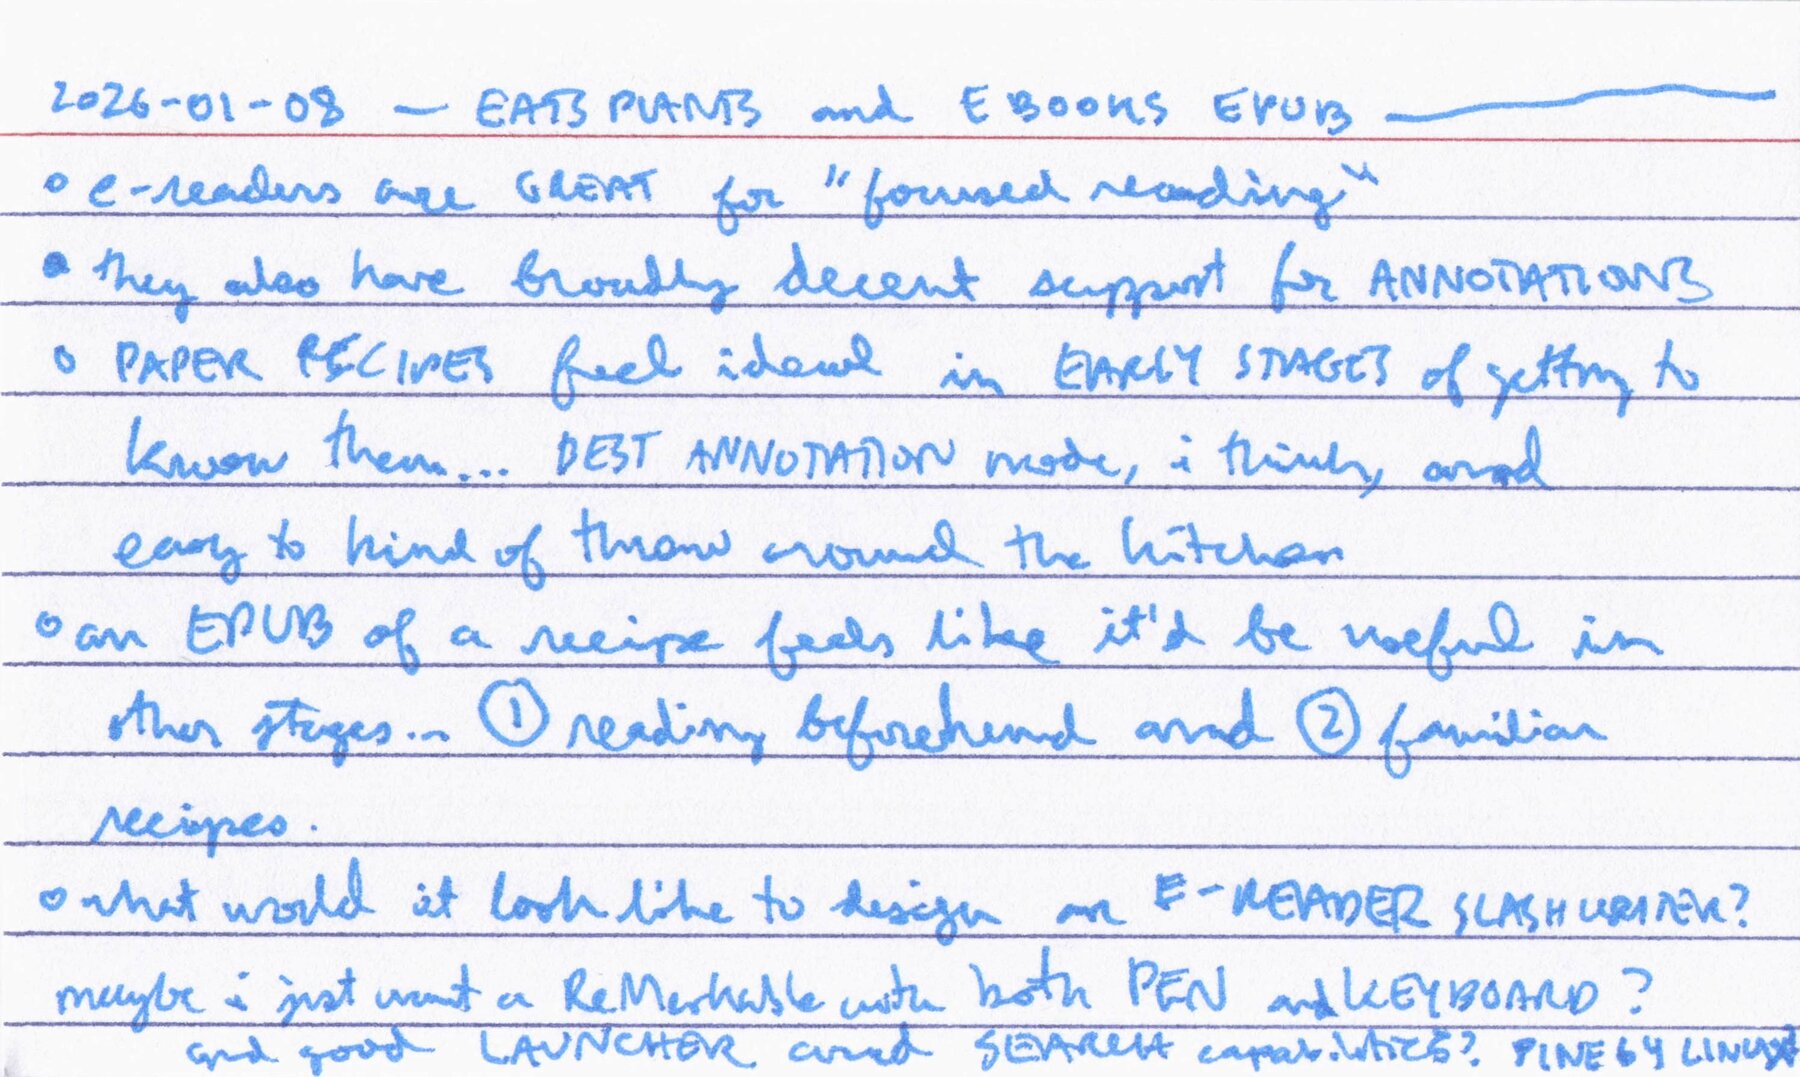 2026-01-08 — EATS PLANTS and EBOOKS EPUB —
o e-readers are GREAT for "focused reading"
• they also have broadly decent support for ANNOTATIONS
o PAPER RECIPES feel ideal in EARLY STAGES of getting to
know them... BEST ANNOTATION mode, i think, and
easy to kind of throw around the kitchen
o an EPUB of a recipe feels like it'd be useful in
other stages... ① reading beforehand and ② familiar
recipes.
o what would it look like to design an E-READER SLASH WRITER?
maybe i just want a ReMarkable with both PEN and KEYBOARD?
and good LAUNCHER and SEARCH capabilities? PINE64 LINUX